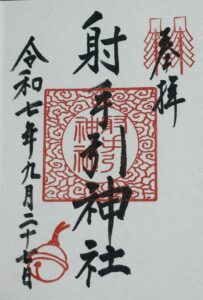 奉拝
射手引神社
射手引神社
令和七年九月二十七日